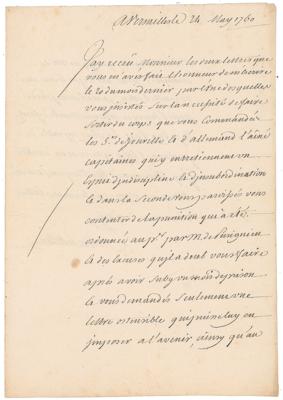 A Versailles le 24 May 1760
J'ay receu Monsieur les deux lettres que
vous m'avés fait l'honneur de m'ecrire
le 20 du mois dernier par l'une desquelles
vous insistés sur la necessité de faire
sortir du corps que vous commandés
les S.rs de et d'allemand l'ainé
capitaines qui y entretiennent un
Esprit d'indiscipline et d'insubordination
et dans la seconde vous paroissés vous
contenter de la punition qui a eté
ordonnée au p.er par M. de
et des excuses qu'il a deub vous faire
après avoir suby un mois de prison
et vous demandés seulement une
lettre ostensible qui puisse luy en
imposer a l'avenir, ainsy qu'au